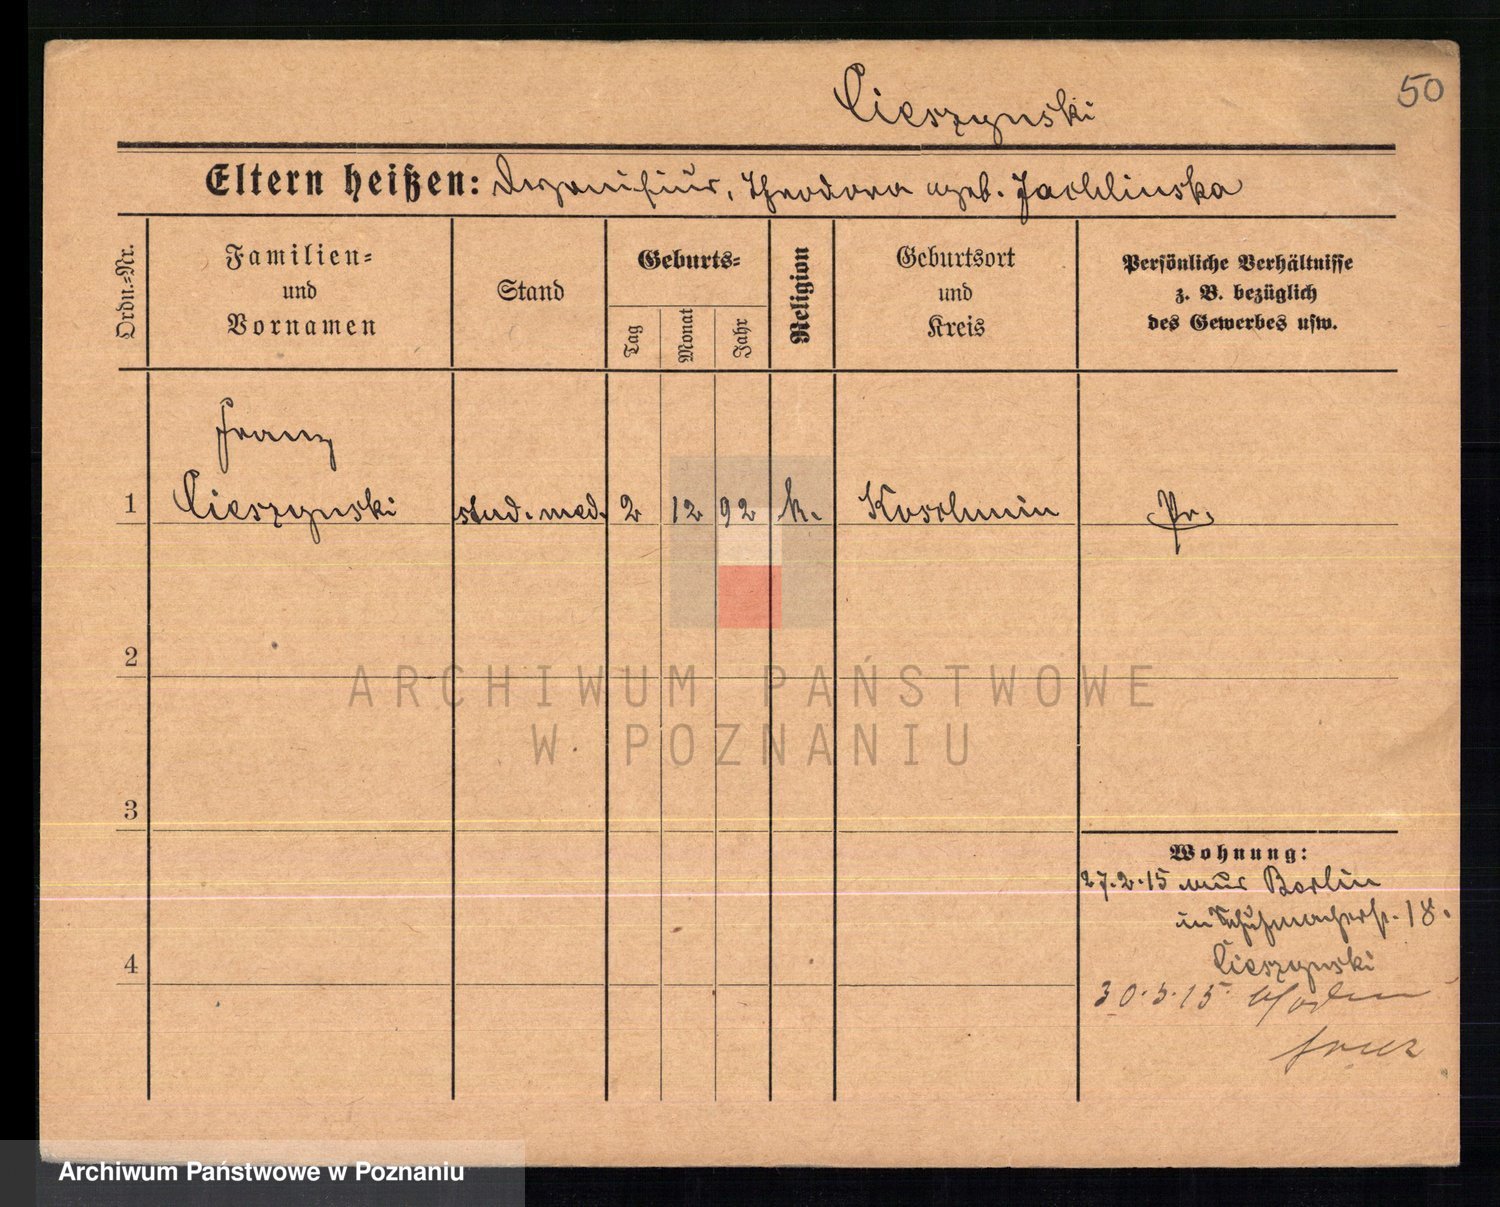 50
Cieszynski
Eltern heißen: Theodora geb. Jachlinska
Ordn.-Nr.
Familien-
und
Vornamen
Stand
Geburts-
Tag
Monat
Jahr
Religion
Geburtsort
und
Kreis
Persönliche Verhältnisse
z. B. bezüglich
des Gewerbes usw.
Franz
1 Cieszynski stud. med. 2 12 92 k. Koschmin Pr.
2
ARCHIWUM PAŃSTWOWE
W POZNANIU
3
Wohnung:
27.2.15 aus Berlin
in Schuhmacherstr. 18.
4
Cieszynski
30.3.15
Archiwum Państwowe w Poznaniu